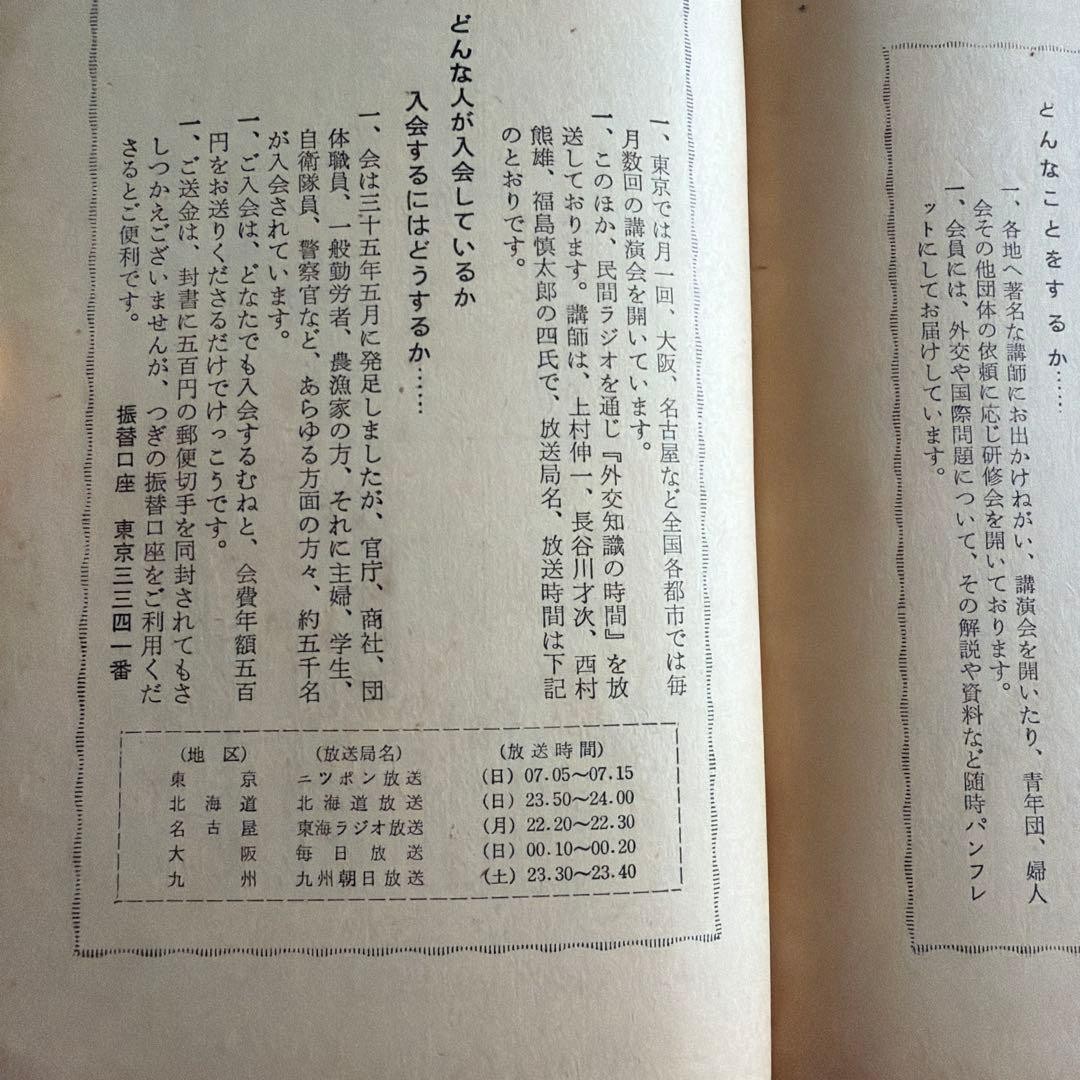 どんなことをするか……
一、各地へ著名な講師にお出かけねがい、講演会を開いたり、青年団、婦人
会その他団体の依頼に応じ研修会を開いております。
一、会員には、外交や国際問題について、その解説や資料など随時パンフレ
ットにしてお届けしています。
一、東京では月一回、大阪、名古屋など全国各都市では毎
月数回の講演会を開いています。
一、このほか、民間ラジオを通じ『外交知識の時間』を放
送しております。講師は、上村伸一、長谷川才次、西村
熊雄、福島慎太郎の四氏で、放送局名、放送時間は下記
のとおりです。
どんな人が入会しているか
入会するにはどうするか……
一、会は三十五年五月に発足しましたが、官庁、商社、団
体職員、一般勤労者、農漁家の方、それに主婦、学生、
自衛隊員、警察官など、あらゆる方面の方々、約五千名
が入会されています。
一、ご入会は、どなたでも入会するむねと、会費年額五百
円をお送りくださるだけでけっこうです。
一、ご送金は、封書に五百円の郵便切手を同封されてもさ
しつかえございませんが、つぎの振替口座をご利用くだ
さるとご便利です。
振替口座 東京三三四一番
(地区) (放送局名) (放送時間)
東京 ニツポン放送 (日) 07.05〜07.15
北海道 北海道放送 (日) 23.50〜24.00
名古屋 東海ラジオ放送 (月) 22.20〜22.30
大阪 毎日放送 (日) 00.10〜00.20
九州 九州朝日放送 (土) 23.30〜23.40